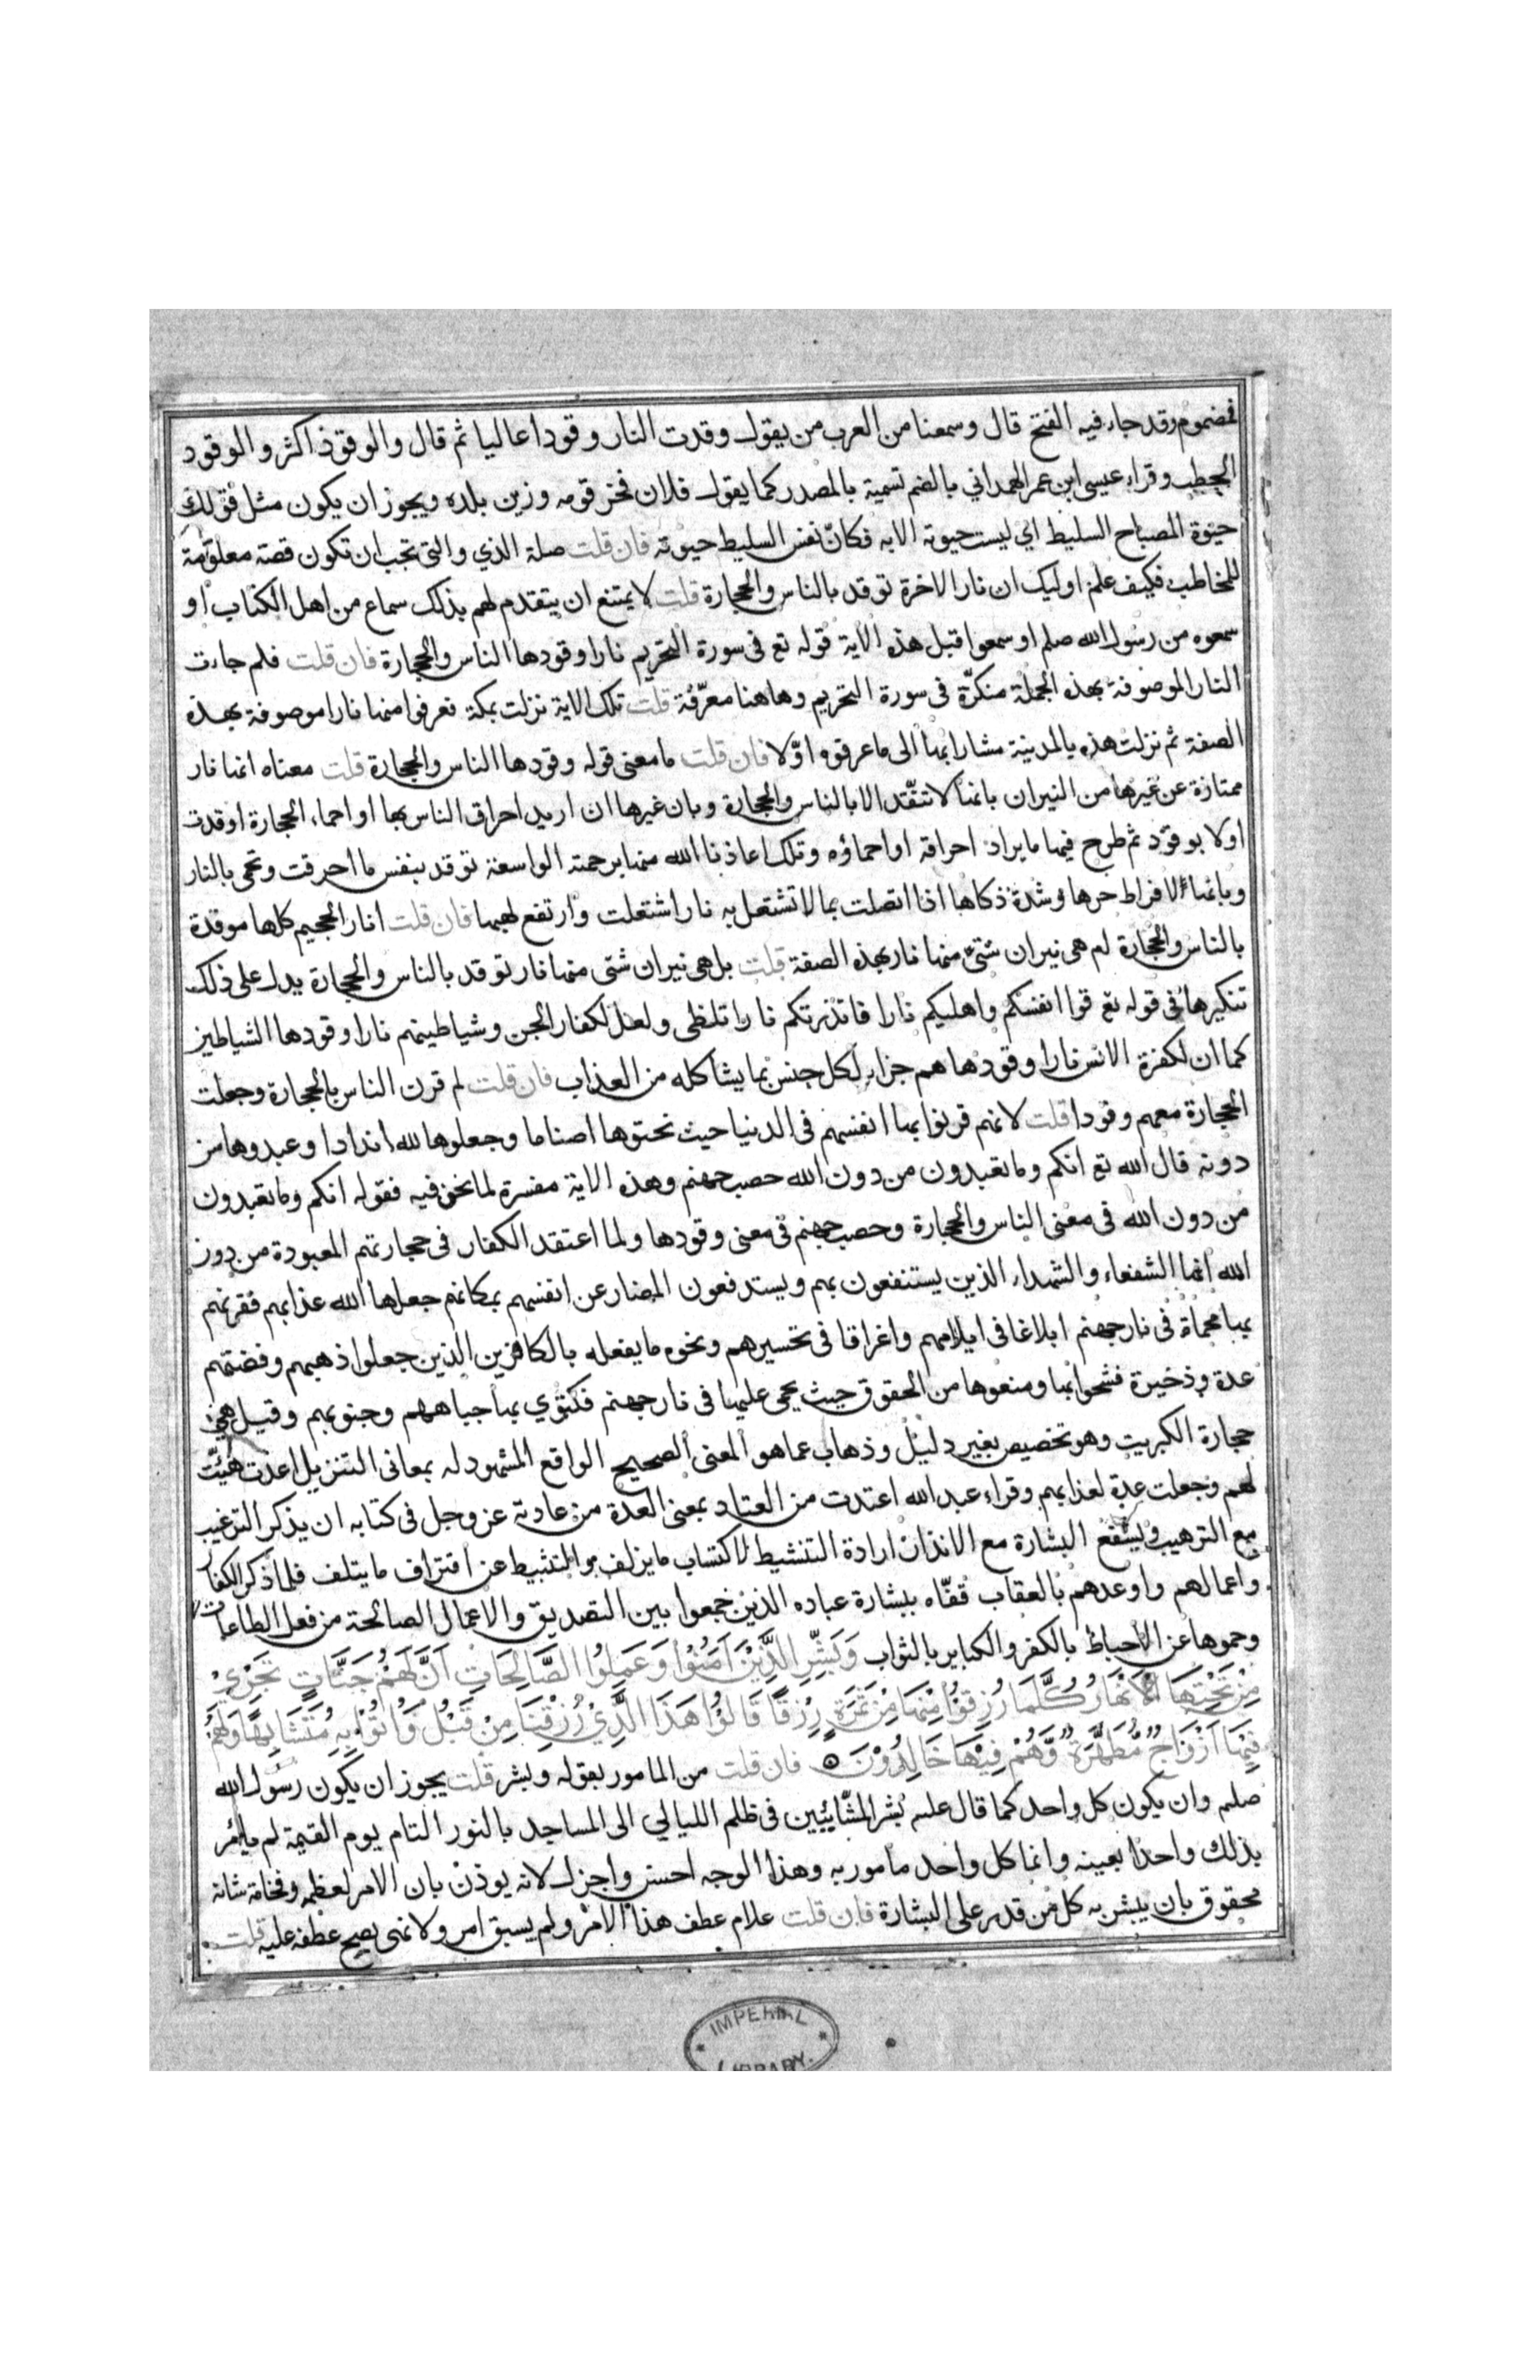 فمضموم وقد جاء فيه الفتح قال وسمعنا من العرب من يقول وقدت النار وقودا عاليا ثم قال والوقود اكثر والوقود
الحطب وقراء عيسى ابن عمر الهمداني بالضم تسمية بالمصدر كما يقول فلان فخر قومه وزين بلده ويجوز ان يكون مثل قولك
حيوة المصباح السليط اي ليست حيوته الا به فكانّ نفس السليط حيوته فان قلت صلة الذي والتي تجب ان تكون قصة معلومة
للمخاطب فكيف علم اوليك ان نار الاخرة توقد بالناس والحجارة قلت لا يمتنع ان يتقدم لهم بذلك سماع من اهل الكتاب او
سمعوه من رسول الله صلم او سمعوا قبل هذه الاية قوله تع فى سورة التحريم نارا وقودها الناس والحجارة فان قلت فلم جاءت
النار الموصوفة بهذه الجملة منكرّة فى سورة التحريم وهاهنا معرّفة قلت تلك الاية نزلت بمكة فعرفوا منها نارا موصوفة بهذه
الصفة ثم نزلت هذه بالمدينة مشارا بها الى ما عرفوه اوّلا فان قلت ما معنى قوله وقودها الناس والحجارة قلت معناه انها نار
ممتازة عن غيرها من النيران بانها لا تتّقد الا بالناس والحجارة وبان غيرها ان اريد احراق الناس بها او احماء الحجارة اوقدت
اولا بوقود ثم طرح فيها ما يراد احراقه او احماؤه وتلك اعاذنا الله منها برحمته الواسعة توقد بنفس ما احرقت وتحمى بالنار
وبانها لافراط حرها وشدة ذكاها اذا اتصلت بما لا تشتعل به نار اشتعلت وارتفع لهبها فان قلت انار الجحيم كلها موقدة
بالناس والحجارة لم هى نيران شتى منها نار بهذه الصفة قلت بل هى نيران شتى منها نار توقد بالناس والحجارة يدل على ذلك
تنكيرها فى قوله تع قوا انفسكم واهليكم نارا فانذرتكم نارا تلظى ولعل لكفار الجن وشياطينهم نارا وقودها الشياطين
كما ان لكفرة الانس نارا وقودها هم جزاء لكل جنس بما يشاكله من العذاب فان قلت لم قرن الناس بالحجارة وجعلت
الحجارة معهم وقودا قلت لانهم قرنوا بها انفسهم فى الدنيا حيث نحتوها اصناما وجعلوها لله اندادا وعبدوها من
دونه قال الله تع انكم وما تعبدون من دون الله حصب جهنم وهذه الاية مفسرة لما نحن فيه فقوله انكم وما تعبدون
من دون الله فى معنى الناس والحجارة وحصب جهنم فى معنى وقودها ولما اعتقد الكفار فى حجارتهم المعبودة من دون
الله انها الشفعاء والشهداء الذين يستنفعون بهم ويستدفعون المضار عن انفسهم بمكانهم جعلها الله عذابهم فقرنهم
بها محماة فى نار جهنم ابلاغا فى ايلامهم واغراقا فى تحسيرهم ونحوه ما يفعله بالكافرين الذين جعلوا ذهبهم وفضتهم
عدة وذخيرة فشحوا بها ومنعوها من الحقوق حيث يحمى عليها فى نار جهنم فكتؤي بها جباههم وجنوبهم وقيل هى
حجارة الكبريت وهو تخصيص بغير دليل وذهاب عما هو المعنى الصحيح الواقع المشهود له بمعانى التنزيل اعدت هيّئت
لهم وجعلت عدة لعذابهم وقراء عبد الله اعتدت من العتاد بمعنى العدة من عادته عز وجل فى كتابه ان يذكر الترغيب
مع الترهيب ويشفع البشارة مع الانذار ارادة التنشيط لاكتساب ما يزلف والتثبيط عن اقتراف ما يتلف فلما ذكر الكفار
واعمالهم واوعدهم بالعقاب قفّاه ببشارة عباده الذين جمعوا بين التصديق والاعمال الصالحة من فعل الطاعات
وحموها عن الاحباط بالكفر والكباير بالثواب وَبَشِّرِ الَّذِيْنَ اٰمَنُوْا وَعَمِلُوا الصَّالِحَاتِ اَنَّ لَهُمْ جَنَّاتٍ تَجْرِيْ
مِنْ تَحْتِهَا الْاَنْهَارُ كُلَّمَا رُزِقُوْا مِنْهَا مِنْ ثَمَرَةٍ رِزْقًا قَالُوْا هَذَا الَّذِيْ رُزِقْنَا مِنْ قَبْلُ وَاُتُوْا بِهِ مُتَشَابِهًا وَلَهُمْ
فِيْهَا اَزْوَاجٌ مُطَهَّرَةٌ وَّهُمْ فِيْهَا خَالِدُوْنَ فان قلت من المامور بقوله وبشر قلت يجوز ان يكون رسول الله
صلم وان يكون كل واحد كما قال علسه بشر المشّائين فى ظلم الليالي الى المساجد بالنور التام يوم القيمة لم يامر
بذلك واحدا بعينه وانما كل واحد مامور به وهذا الوجه احسن واجزل لانه يوذن بان الامر لعظمه وفخامة شانه
محقوق بان يبشر به كل من قدر على البشارة فان قلت علام عطف هذا الامر ولم يسبق امر ولا نهى يصح عطفه عليه قلت
IMPERIAL
LIBRARY.